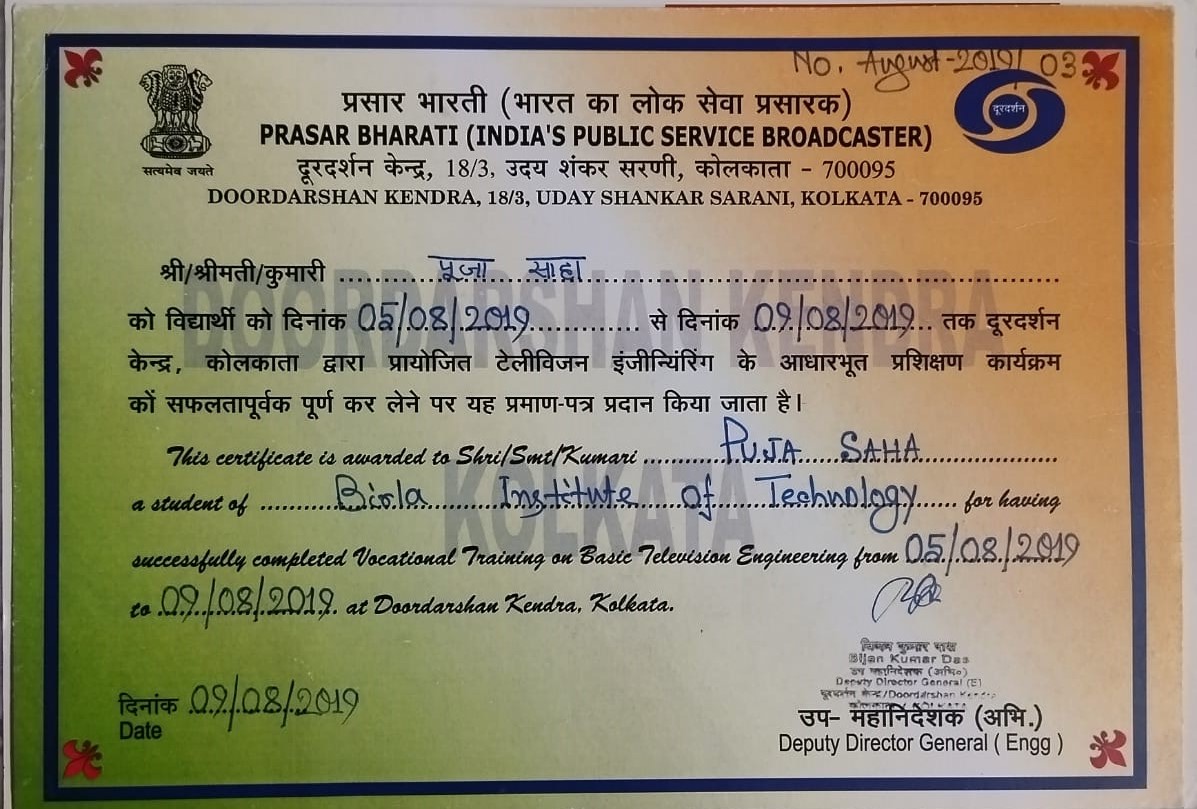 No. August-2019/03
प्रसार भारती (भारत का लोक सेवा प्रसारक)
दूरदर्शन
PRASAR BHARATI (INDIA'S PUBLIC SERVICE BROADCASTER)
सत्यमेव जयते
दूरदर्शन केन्द्र, 18/3, उदय शंकर सरणी, कोलकाता - 700095
DOORDARSHAN KENDRA, 18/3, UDAY SHANKAR SARANI, KOLKATA - 700095
DOORDARSHAN KENDRA
KOLKATA
श्री/श्रीमती/कुमारी पूजा साहा
को विद्यार्थी को दिनांक 05/08/2019 से दिनांक 09/08/2019 तक दूरदर्शन
केन्द्र, कोलकाता द्वारा प्रायोजित टेलीविजन इंजीन्यिंरिंग के आधारभूत प्रशिक्षण कार्यक्रम
कों सफलतापूर्वक पूर्ण कर लेने पर यह प्रमाण-पत्र प्रदान किया जाता है।
This certificate is awarded to Shri/Smt/Kumari PUJA SAHA
a student of Birla Institute of Technology for having
successfully completed Vocational Training on Basic Television Engineering from 05/08/2019
to 09/08/2019 at Doordarshan Kendra, Kolkata.
Bijan Kumar Das
Deputy Director General (E)
दूरदर्शन केन्द्र/Doordarshan Kendra
कोलकाता / KOLKATA
दिनांक 09/08/2019
Date
उप- महानिदेशक (अभि.)
Deputy Director General ( Engg )